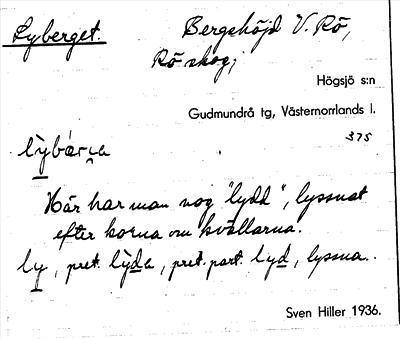 Lyberget.
Bergshöjd V. Rö,
Rö skog;
Högsjö s:n
Gudmundrå tg, Västernorrlands l.
375
Här har man nog "lydd", lyssnat
efter korna om kvällarna.
ly, pret. lyda, pret. part. lyd, lyssna.
Sven Hiller 1936.